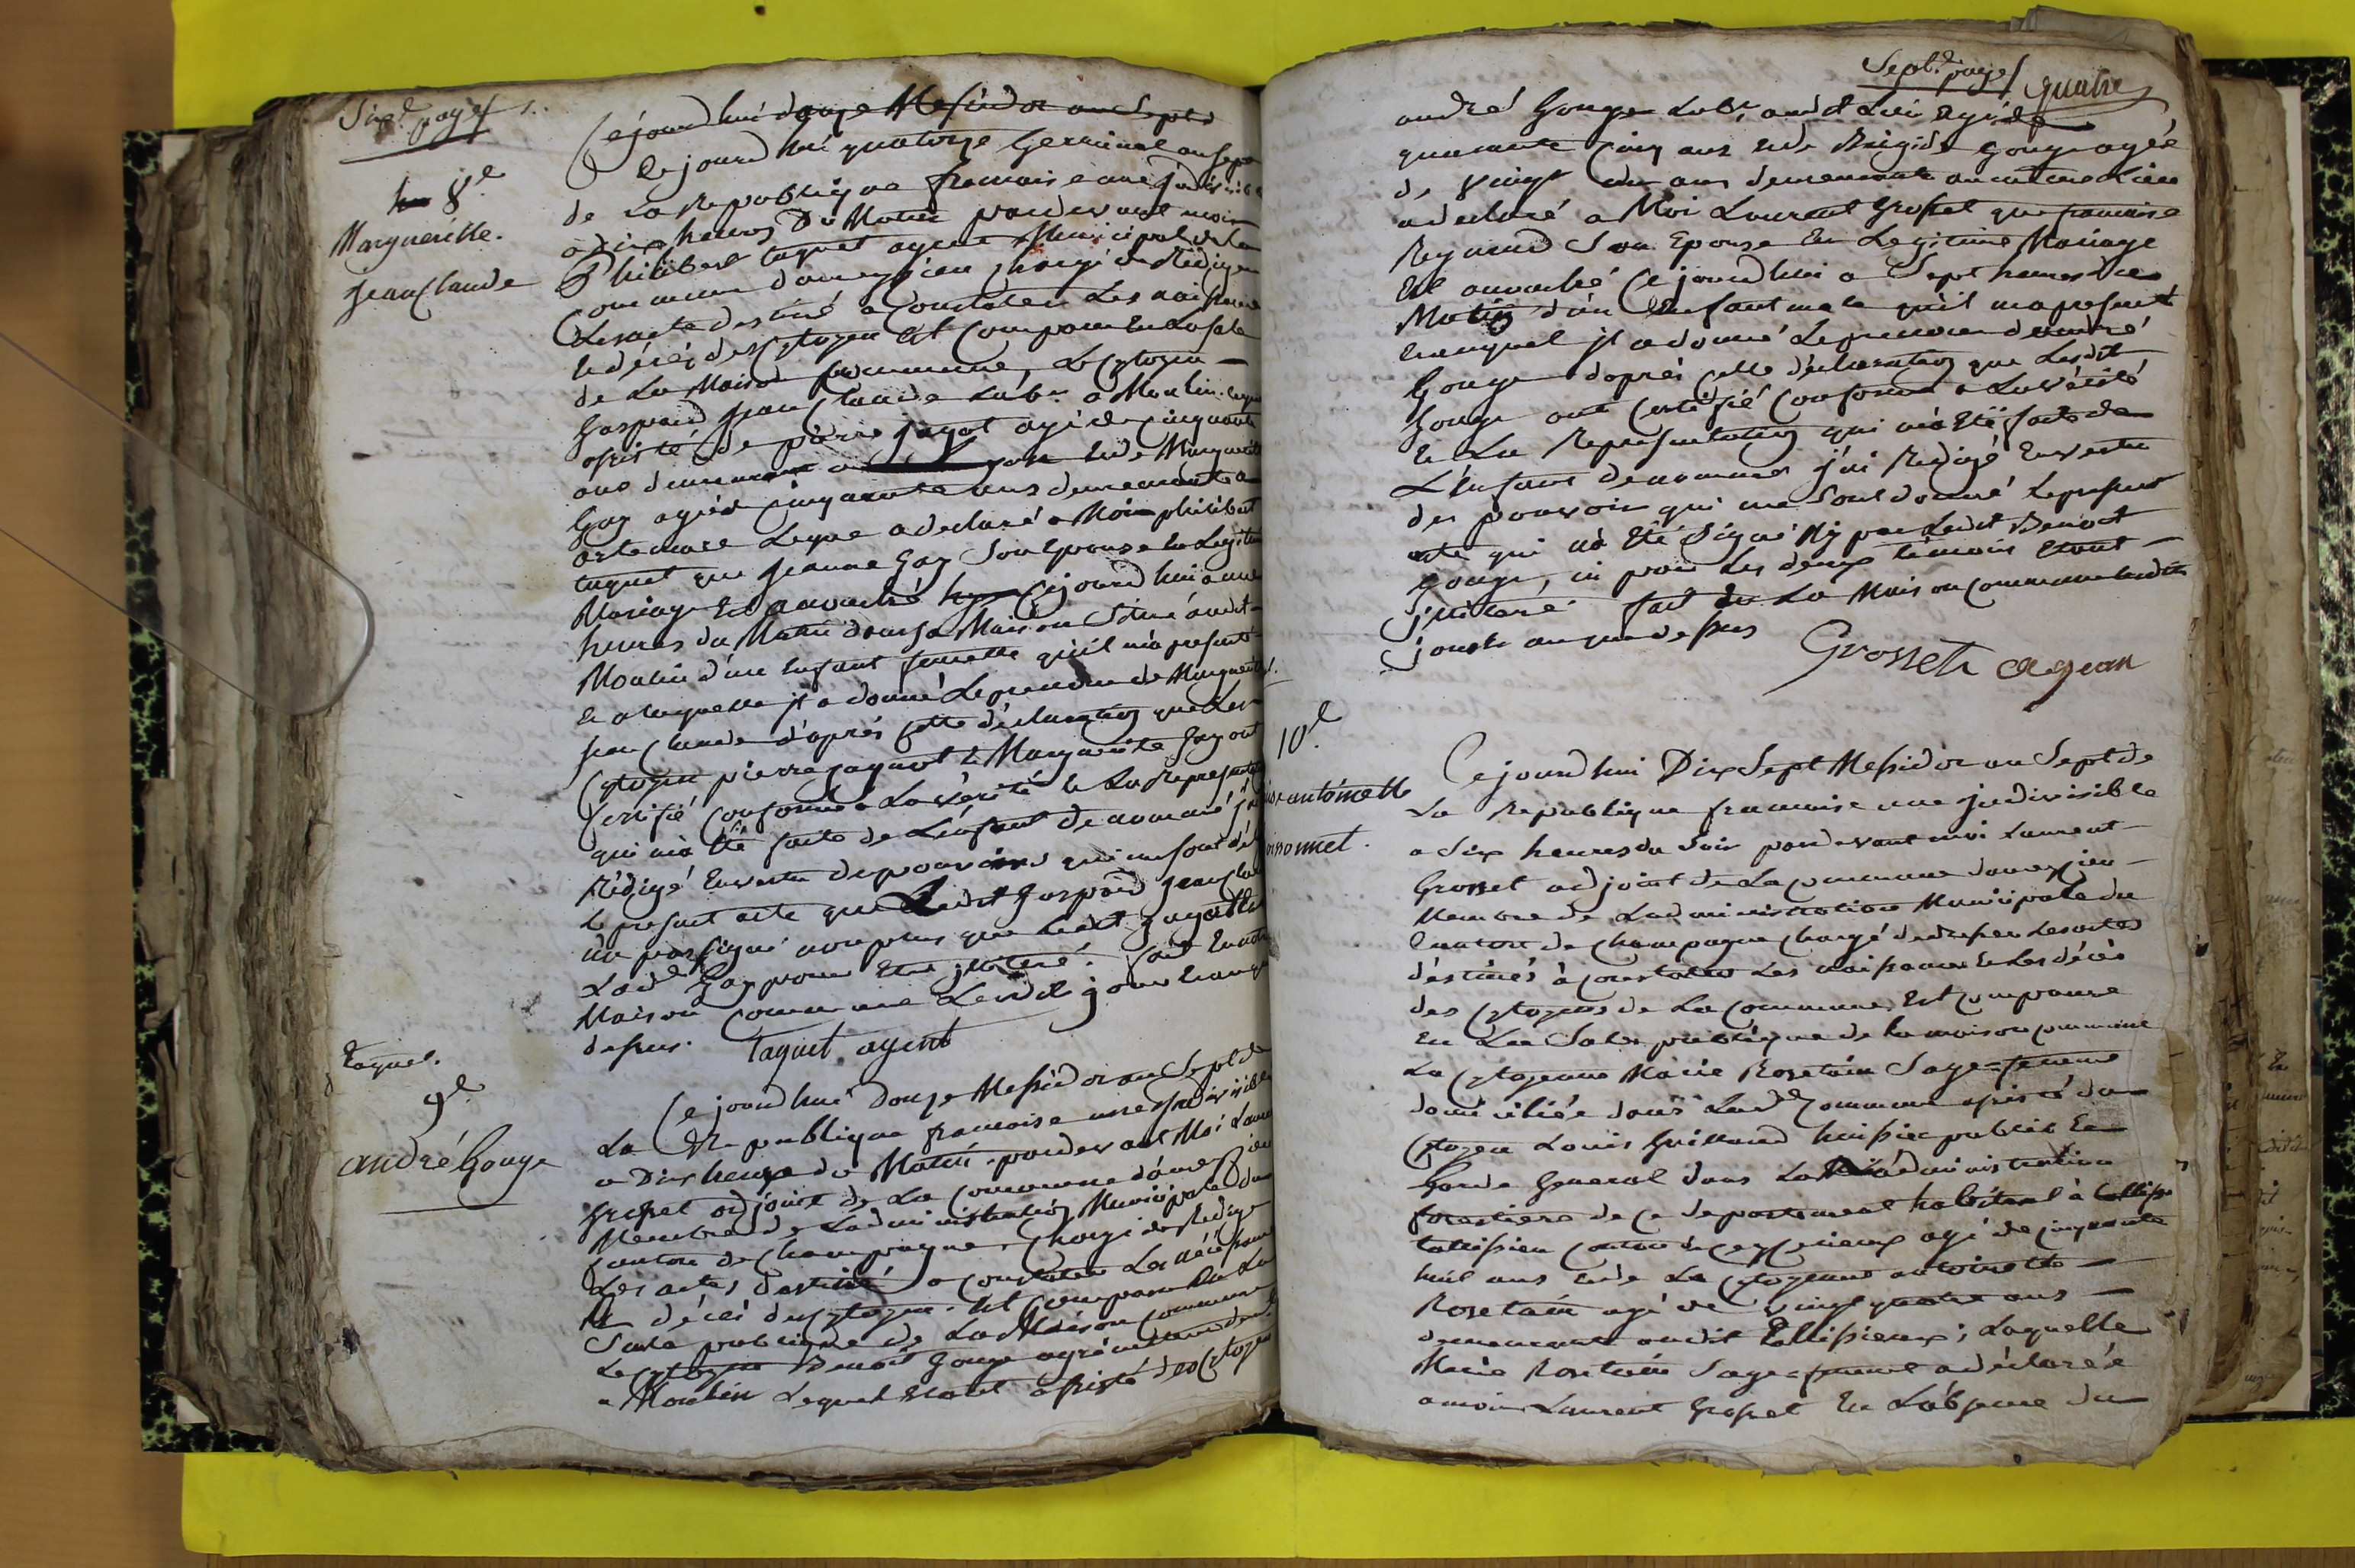 Sixe. page
8e
Marguerite.
Jean Claude
Cejourd'hui douze Messidor an Sept
Cejourd hui quatorze Germinal an Sept
de La Republique francaise une Indivisible
a dix heures Du Matin pardevant moi
Philibert taquet agent Municipal de la
Commune dameyzieu chargé de Rediger
Les acte destiné a Constater Les naissance
& décès des Cytoyen Est Comparu En La Sale
de La Maison Commune, Le Cytoyen
Gaspard Jean Claude Labr. a Moulin.
assisté de pierre jagot agé de cinquante
ans demeurant a & de Marguerite
Gay agéé cinquante ans demeurante a
artemare Leque a declaré a Moi philibert
taquet que Jeanne Gay Son Epouse En Legitime
Mariage Est accouché Cejourd hui a une
heures du Matin dans sa Maison Situé audit
Moulin d'une Enfant femelle qu'il m'a présenté
& a laquelle Il a donné Le prenom de Marguerite
Jean Claude d'après cette déclaration que Les
Cytoyen pierre jagot & Marguerite Gay ont
Certifié Conforme a La Vérité & La Représentation
qui m'a Eté faite de L'Enfant denommé j'ai
Rédigé En vertu des pouvoirs qui me sont dé
Le présent acte que Ledit Gaspard Jean Claude
n'a pas signé non plus que Ledit jagot &
Lade Gay pour Etre illiteré. fait En notre
Maison Commune Lesdit jour & an que
dessus. Taquet agent
Taquet.
9e
andré Gouge
Cejourd hui Douze Messidor an Sept de
La République francaise une Indivisible
a Dix heures du Matin. pardevant Moi Laurent
Grosset adjoint de La Commune dameyzieu
Membre de Ladministration Municipale du
Canton de Champagne, Chargé de Rediger
Les actes destiné a Constater Les naissance
& décès des Cytoyen. Est Comparu En La
Sale publique de La Maison Commune
Le Cytoyen Benoit Gouge
a Moulin Lequel Etant assisté des Cytoyen
Septe. page
quatre
andré Gouge Labr. audit Lieu agé de
quarante Cinq ans & de Brigide Gouge agéé
de vingt un ans demeurant au même Lieu
a declaré a Moi Laurent Grosset que francoise
Reynaud Son Epouse En Legitime Mariage
Est accouché Cejourd hui a Sept heures du
Matin d'un Enfant male qu'il m'a présenté
& auquel Il a donné Le prenom d'andré
Gouge d'après cette déclaration que Lesdit
Gouge ont Certifié Conforme a La vérité
& La Représentation qui m'a Eté faite de
L'Enfant denommé j'ai Redigé En vertu
des pouvoir qui me Sont donné Le présent
acte qui n'a Eté Signé Ny par Ledit Benoit
Gouge, ni par Les deux témoins Etant
Illiteré fait En La Maison Commune Lesdits
jour & an que dessus
Grosset agean
10e
antoinette
Cejourd hui Dix Sept Messidor an Sept de
La Republique francaise une Indivisible
a Six heures du Soir pardevant moi Laurent
Grosset adjoint de La Commune dameyzieu
Membre de Ladministration Municipale du
Canton de Champagne Chargé de dresser Les actes
destinés à Constater Les naissance & Les décès
des Cytoyens de La Commune, Est Comparue
En La Sale publique de la maison Commune
La Cytoyenne Marie Rosetain Sage=femme
domiciliée dans Lade Commune assisté du
Cytoyen Louis Guillaud huissier public &
Garde General dans L'administration
forestiere de Ce departement habitant à
agé de cinquante
huit ans & de La Cytoyenne antoinette
Rosetain agé de vingt quatre ans
demeurant audit ; Laquelle
Marie Rosetain Sage=femme a déclarée
a moi Laurent Grosset En L'absence du